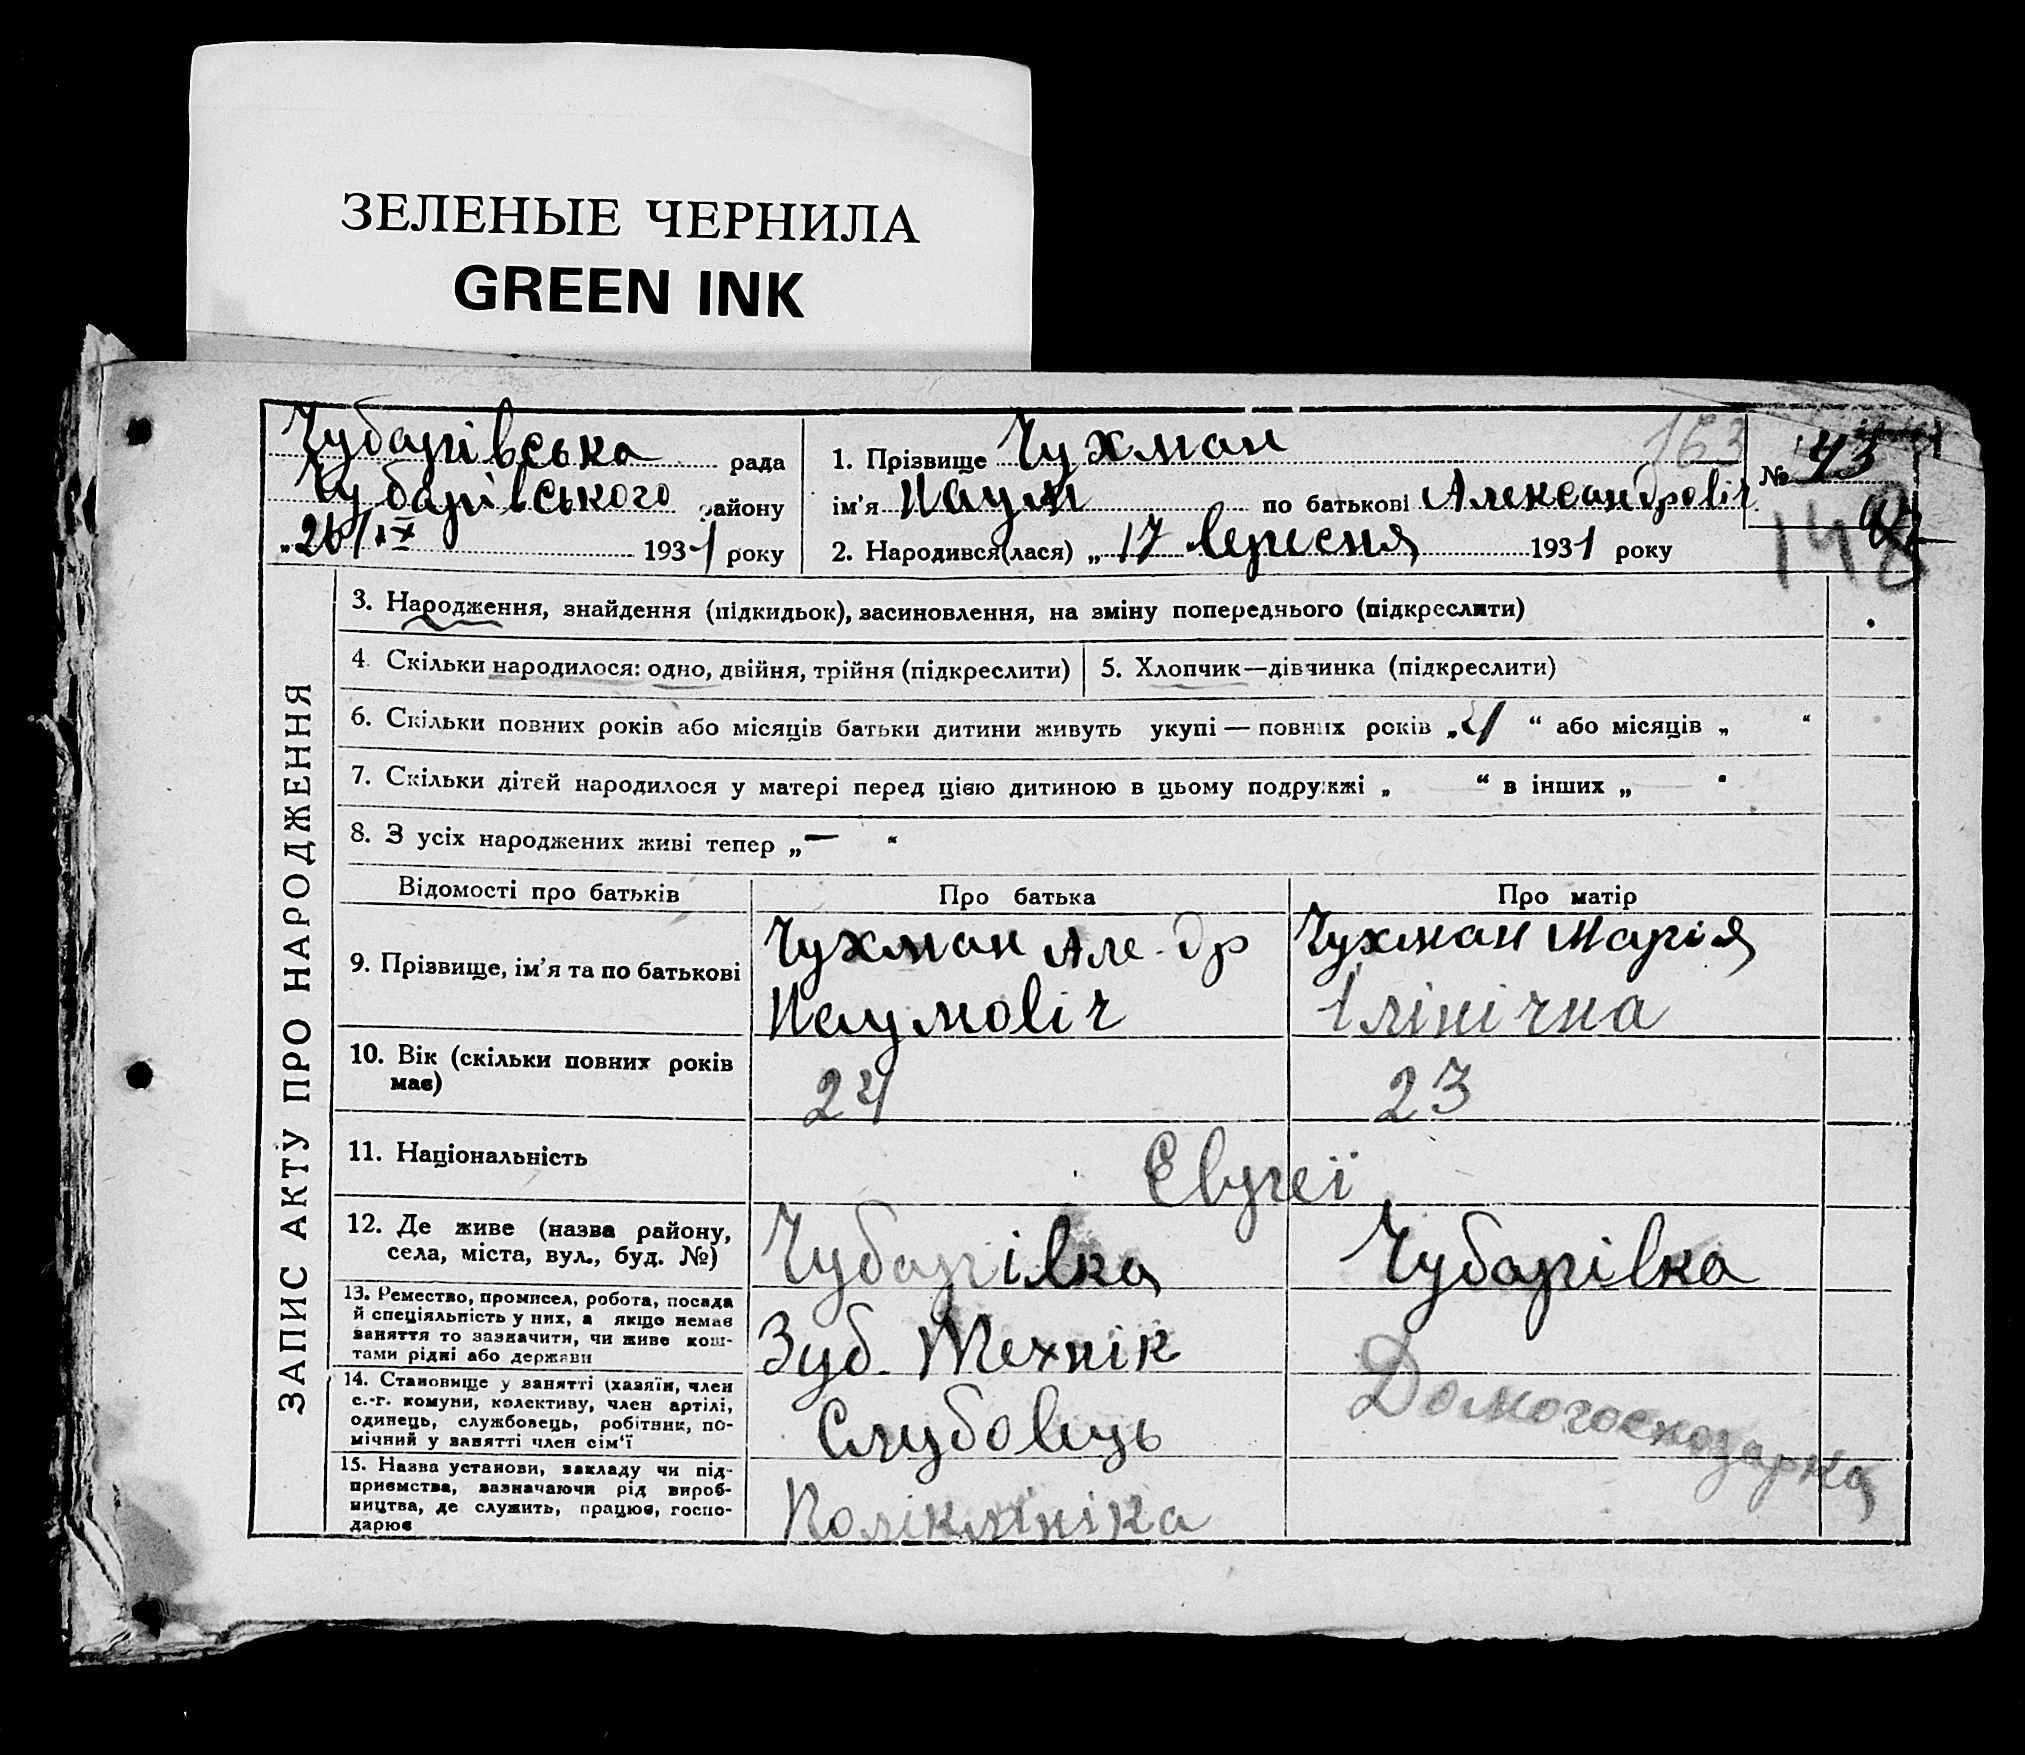 ЗЕЛЕНЫЕ ЧЕРНИЛА
GREEN INK
Чубарівська рада
Чубарівського району
„26/ІХ 1931 року
1. Прізвище Чухман
163
ім’я Наум по батькові Александровіч
2. Народився(лася) „ 17 вересня 1931 року
№ 43
148
ЗАПИС АКТУ ПРО НАРОДЖЕННЯ
3. Народження, знайдення (підкидьок), засиновлення, на зміну попереднього (підкреслити)
4. Скільки народилося: одно, двійня, трійня (підкреслити)
5. Хлопчик—дівчинка (підкреслити)
6. Скільки повних років або місяців батьки дитини живуть укупі — повних років „ “ або місяців „ “
7. Скільки дітей народилося у матері перед цією дитиною в цьому подружжі „ — “ в інших „ — “
8. З усіх народжених живі тепер „ — “
Відомості про батьків
Про батька
Про матір
9. Прізвище, ім’я та по батькові
Чухман Але-др
Наумовіч
Чухман Марія
Ілінічна
10. Вік (скільки повних років
має)
24
23
11. Національність
Євреї
12. Де живе (назва району,
села, міста, вул., буд. №)
Чубарівка
Чубарівка
13. Ремество, промисел, робота, посада
й спеціяльність у них, а якщо немає
заняття то зазначити, чи живе кош-
тами рідні або держави
Зуб. Технік
Домогосподарка
14. Становище у занятті (хазяїн, член
с.-г. комуни, колективу, член артілі,
одинець, службовець, робітник, по-
мічний у занятті член сім‘ї
Слубовець
15. Назва установи, закладу чи під-
приємства, зазначаючи рід вироб-
ництва, де служить, працює, госпо-
дарює
Поліклініка